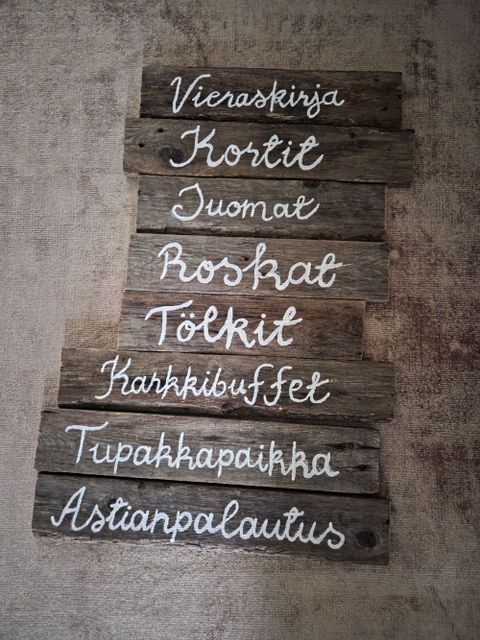 Vieraskirja
Kortit
Juomat
Roskat
Tölkit
Karkkibuffet
Tupakkapaikka
Astianpalautus